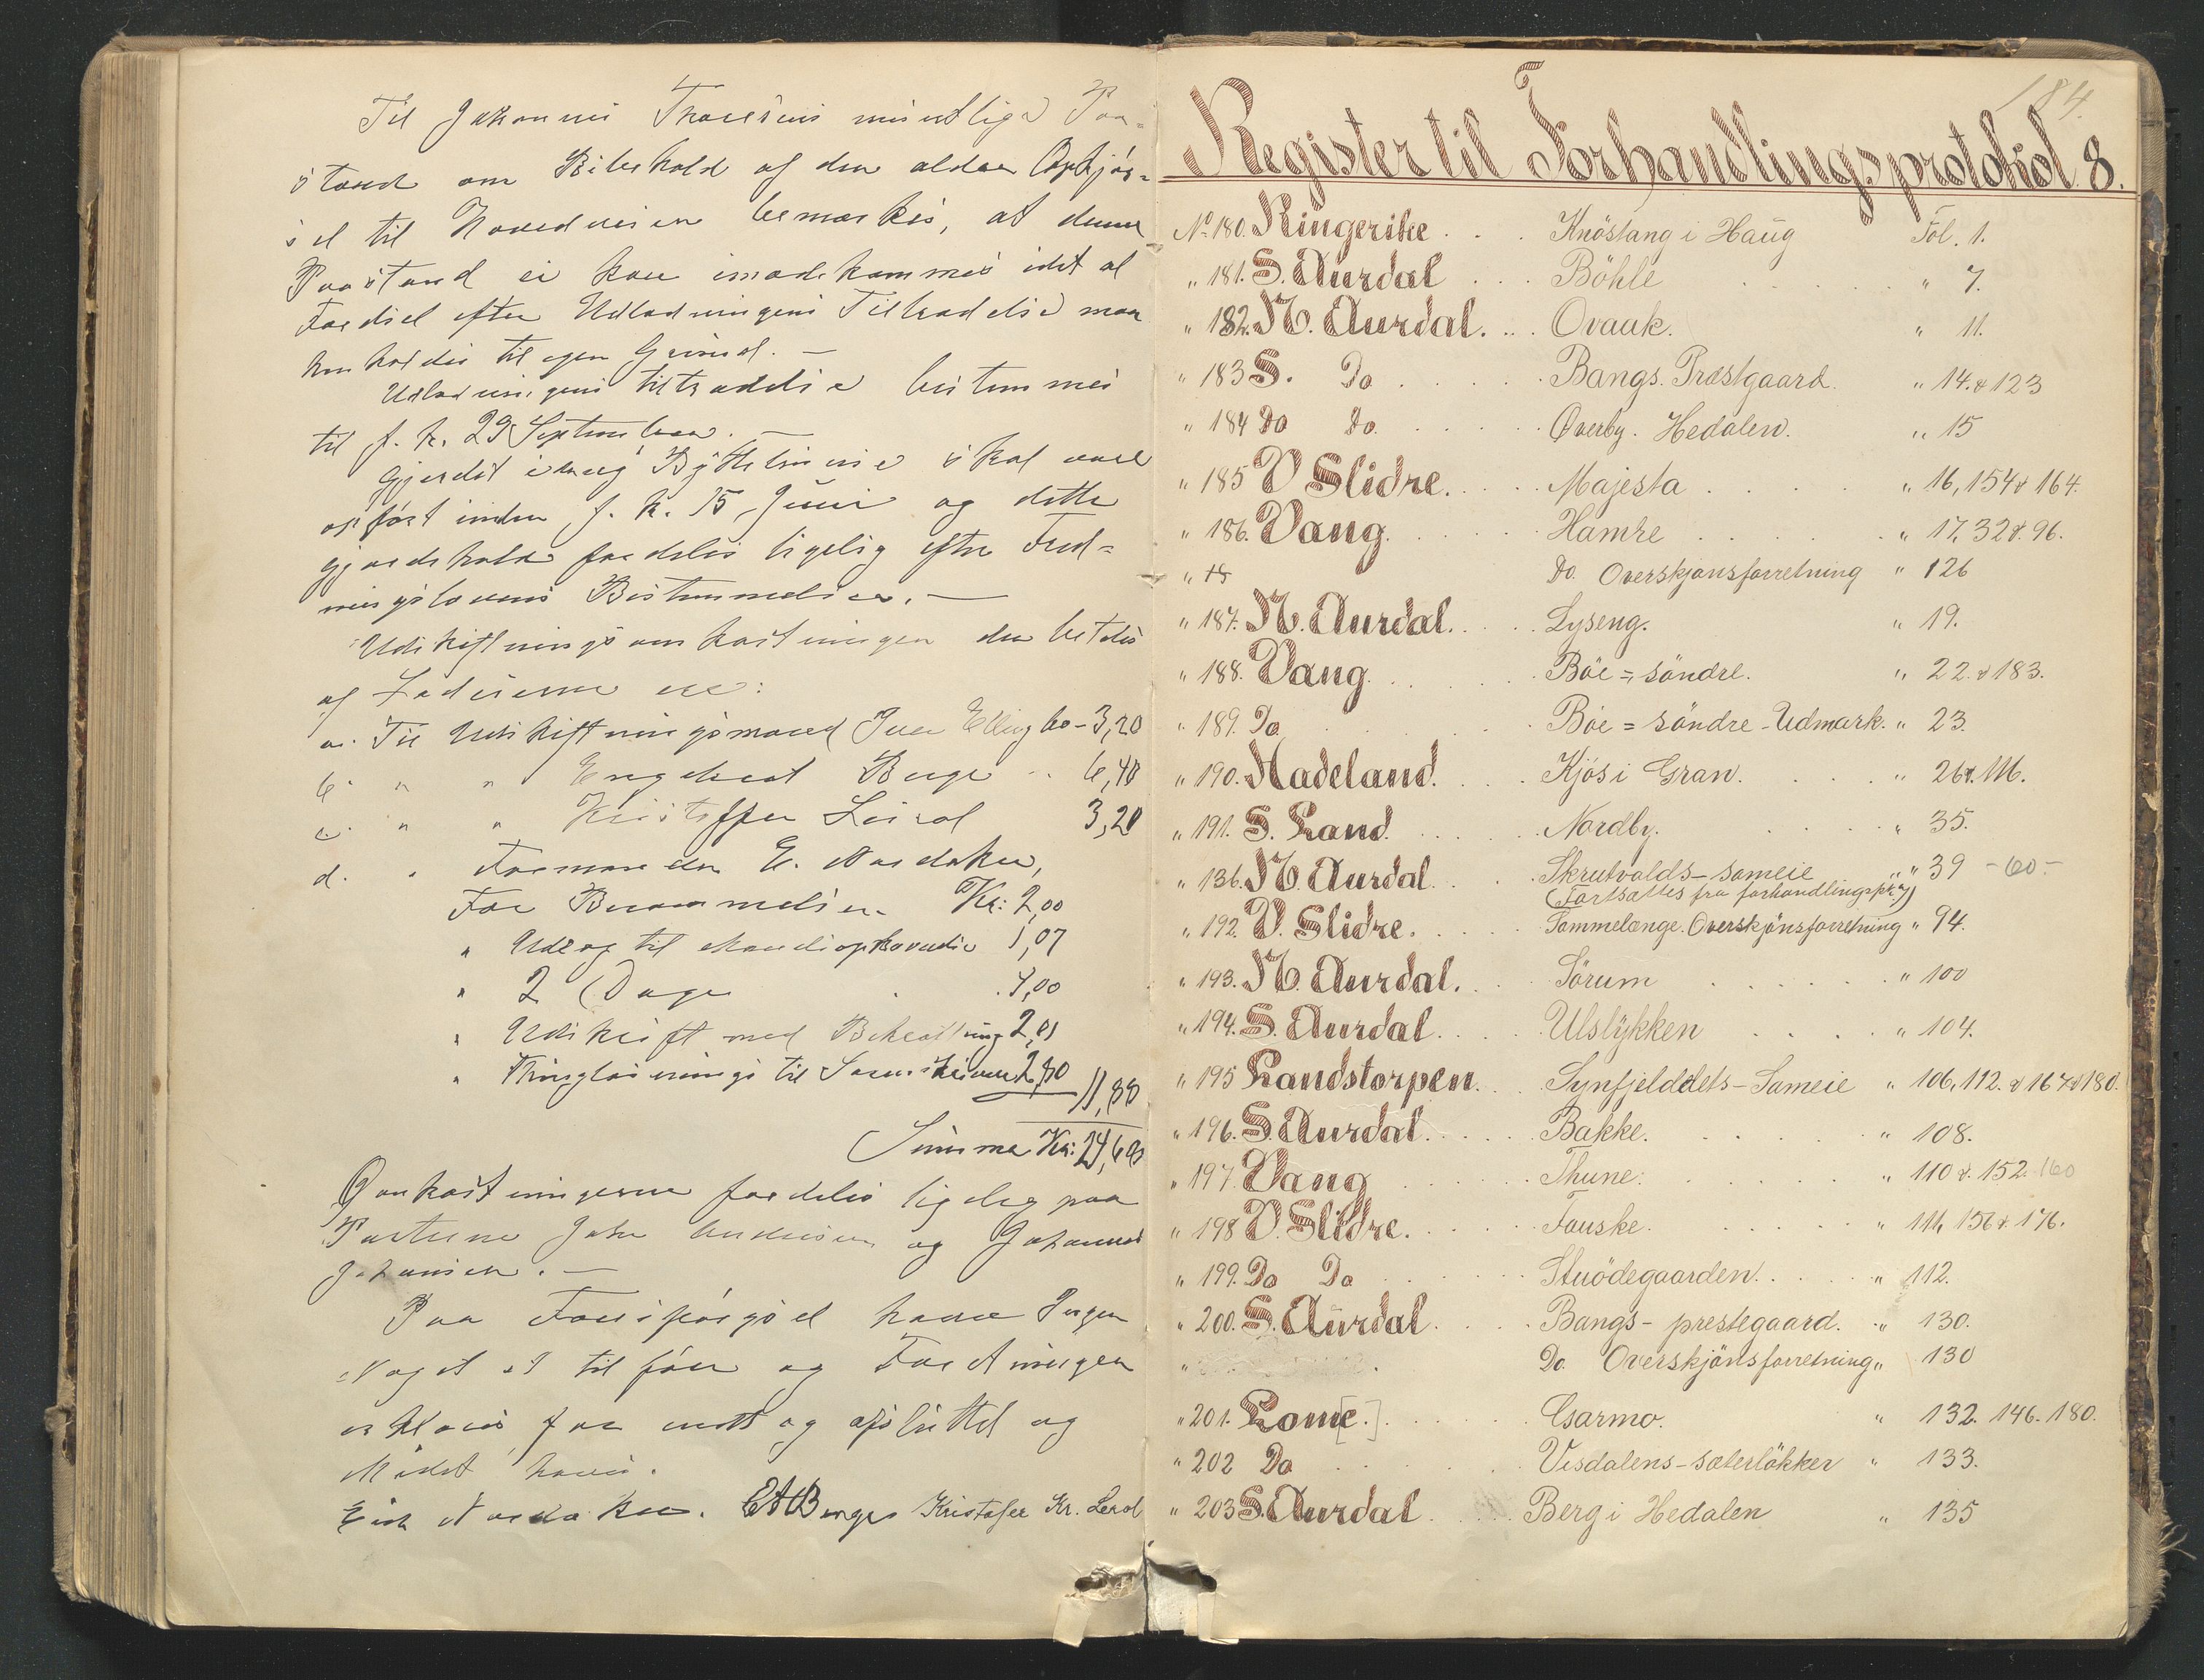 Til Johannes mundtlige Paa-
stand om Bibehold af den
sel til Hovedveien bemærkes, at denne
Paastand ei kan imødekommes idet al
Færdsel efter Udlodningens Tiltrædelse maa
henholdes til egen Grund. —
Udlodningens tiltrædelse bestemmes
til f. k. 29 September. —
Gjerdet skal være
opført inden f. k. 15 Juni og dette
gjærdehold fordeles ligelig efter Fred-
ningslovens Bestemmelser. —
Udskiftningsomkostningen der betales
af er:
a. Til Udskiftningsmand Iver Ellingbø - 3,20
b. " " Engebret Berge .. 6,40
c. " " Kristoffer Leirol 3,20
d. " Formanden E. Nordaker,
For Berammelsen Kr: 2,00
" Udtog til 1,07
" 2 Dage 4,00
" Udskrift med
" Thinglæsnings til Sorenskriveren 11,88
Summa Kr: 24,68
Omkostningerne fordeles ligelig paa
Parterne John Andersen og Johannes
Johansen. —
Paa Forespørgsel havde Ingen
Noget at tilføie og Forretningen
erklæres for endt og afsluttet og
Mødet hævet.
Erik Nordaker. E A Berge Kristofer Kr. Lerol
184.
Register til Forhandlingsprotokol 8.
No 180. Ringerike . . . Knöstang i Haug Fol. 1.
" 181. S. Aurdal . . . Böhle " 7.
" 182. N. Aurdal. . . Ovauk. " 11.
" 183 S. Do . . . Bangs. Præstgaard. " 14. & 123
" 184 Do Do. . . . Øverby. Hedalen. " 15
" 185 V Slidre. . . . Majesta . . . " 16, 154 & 164.
" 186. Vang. . . . Hamre . . . " 17, 32 & 96.
" 18 Do. Overskjønsforretning " 126
" 187. N. Aurdal. . . . Lyseng. " 19.
" 188. Vang. . . . Böe = söndre. " 22. & 183.
" 189. Do . . . Böe = söndre - Udmark. " 23.
" 190. Hadeland. . . . Kjös i Gran. . . . " 26 & 116.
" 191. S. Land. . . . Nordby. . . . " 35.
" 136. N. Aurdal. . . . Skrutvolds - sameie " " 39 - 60 -
(Fortsættes fra forhandlingspr. 7)
" 192. V. Slidre. . . . Sammelænge. Overskjönsforretning " 94.
" 193. N. Aurdal. . . . Sörum . . . " 100
" 194. S. Aurdal. . . . Ulslykken . . . " 104.
" 195 Landstorpen. . . Synfjelddets - Sameie " 106, 112. & 167 & 180.
" 196. S. Aurdal. . . . Bakke. . . . " 108.
" 197. Vang . . . Thune. . . . " 110 & 152. 160
" 198 V. Slidre. . . . Fauske. . . . " 111, 156 & 176.
" 199. Do Do . . . Stuödegaarden. . . . " 112.
" 200. S. Aurdal. . . . Bangs - prestegaard. . " 130.
" Do. Overskjönsforretning " 130
" 201. Lome[.]. . . . Garmo. " 132. 146. 180.
" 202 Do . . . Visdalens - sæterlökker " 133.
" 203 S. Aurdal . . . Berg i Hedalen " 135